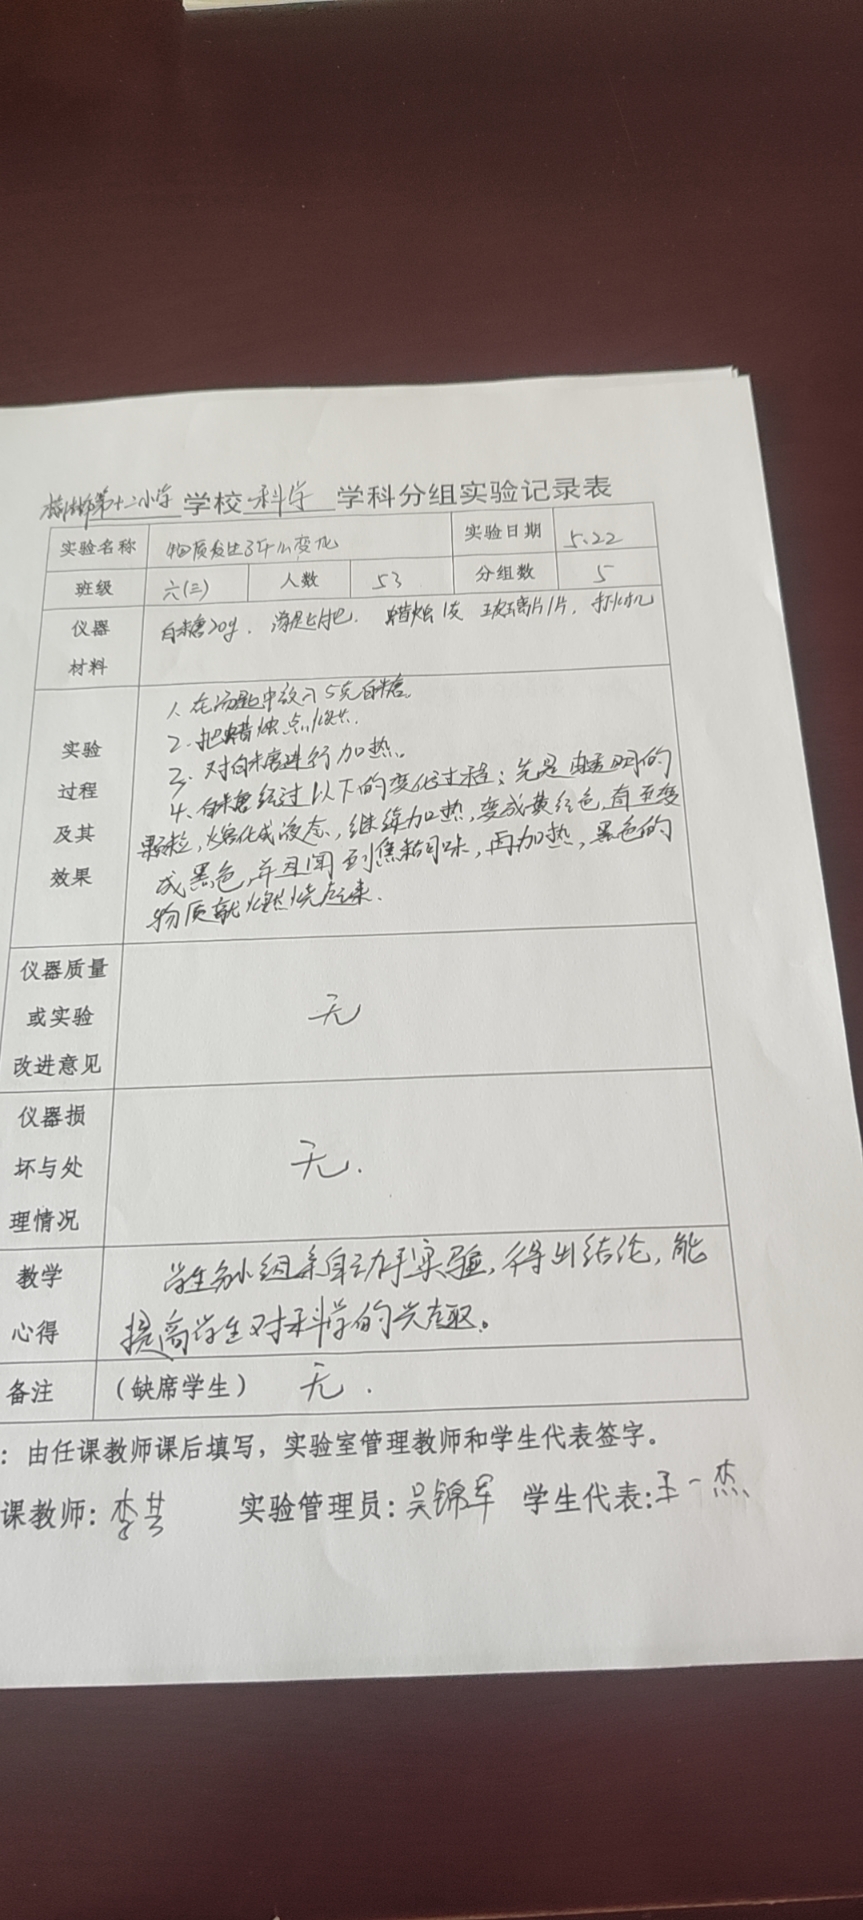 第十二小学 学校 科学 学科分组实验记录表
实验名称 物质发生了什么变化 实验日期 5.22
班级 六(三) 人数 53 分组数 5
仪器 白糖20g. 汤匙1把. 蜡烛1支 玻璃片1片, 打火机
材料
1、在汤匙中放入5克白糖。
2、把蜡烛点燃.
实验
3、对白糖进行加热。
过程
4、白糖经过以下的变化过程:先是由透明的
及其
颗粒,熔化成液态,继续加热,变成黄红色,直至变
效果
成黑色,并且闻到焦糊味,再加热,黑色的
物质就燃烧起来.
仪器质量
或实验 无
改进意见
仪器损
坏与处 无.
理情况
教学 学生分小组亲自动手实验,得出结论,能
心得 提高学生对科学的兴趣。
备注 (缺席学生) 无.
:由任课教师课后填写,实验室管理教师和学生代表签字。
课教师: 李 实验管理员:吴锦军 学生代表:王一杰